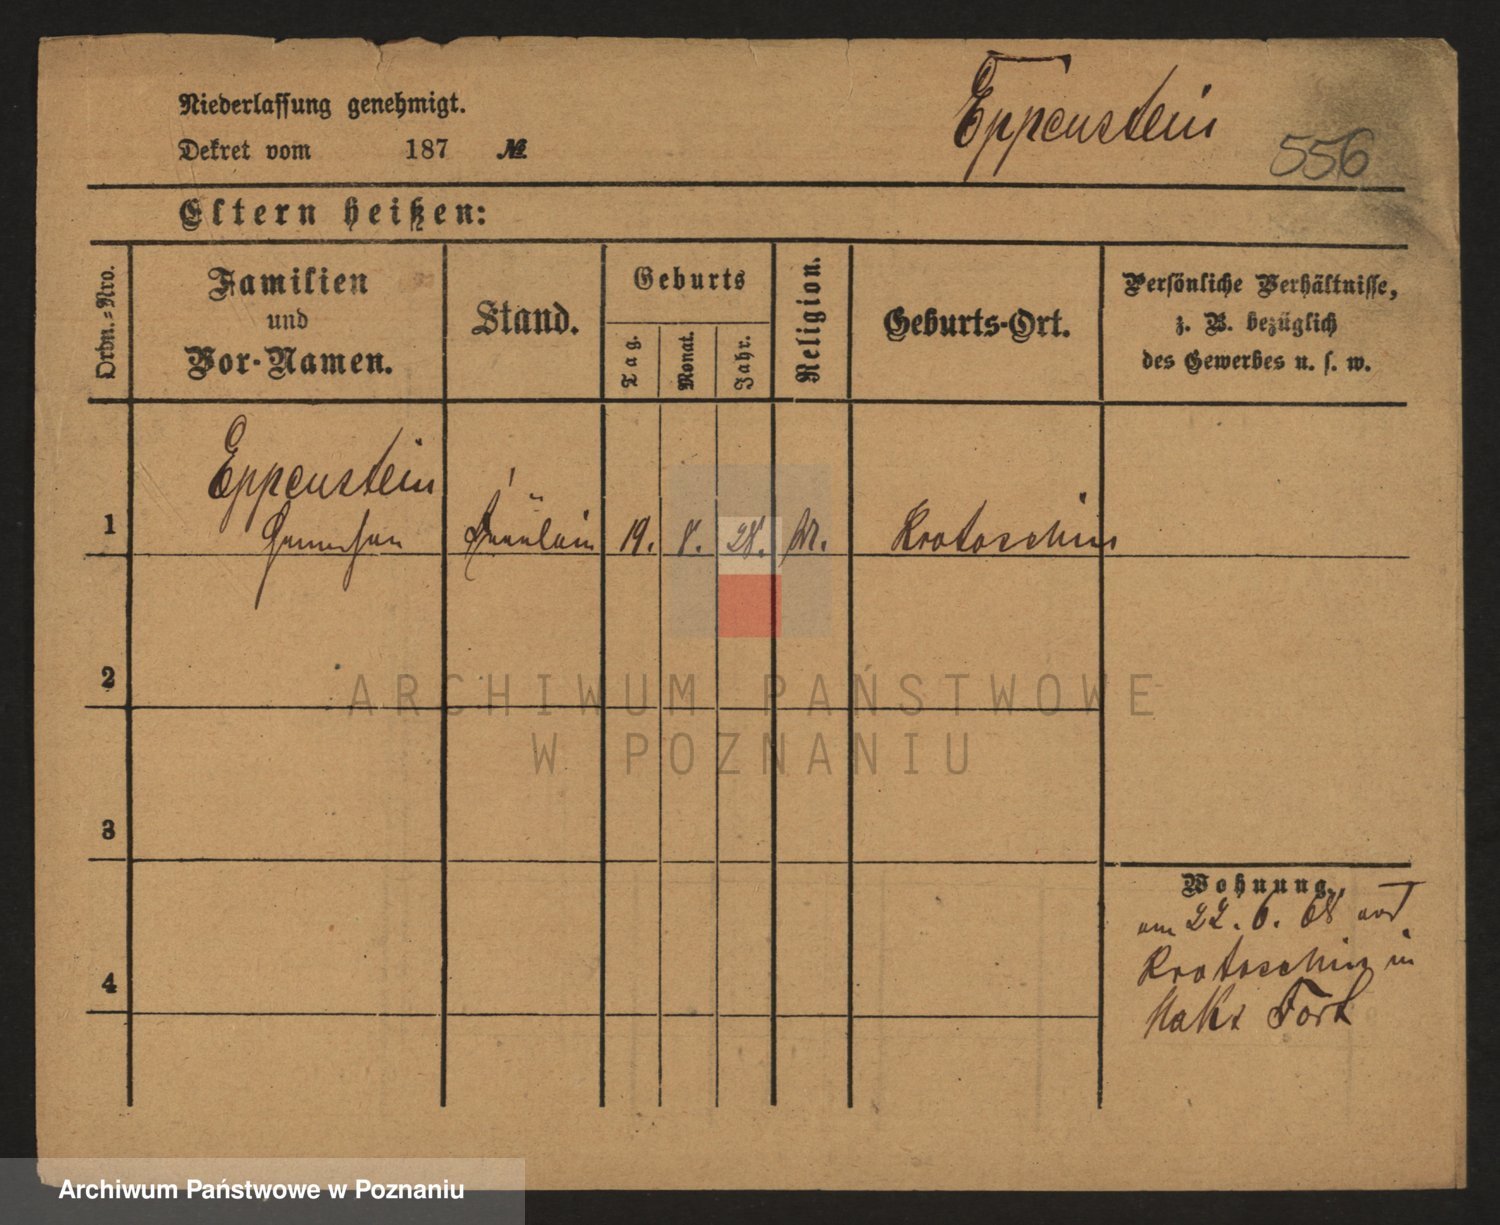 Niederlassung genehmigt.
Dekret vom 187 №
Eppenstein
556
Eltern heißen:
Ordn.-Nro.
Familien
und
Vor-Namen.
Stand.
Geburts
Tag.
Monat.
Jahr.
Religion.
Geburts-Ort.
Persönliche Verhältnisse,
z. B. bezüglich
des Gewerbes u. s. w.
Eppenstein
1
Fräulein
19. 8. 28.
Krotoschin
2
ARCHIWUM PAŃSTWOWE
W POZNANIU
3
Wohnung.
am 22. 6. 68
Krotoschin in
4
Archiwum Państwowe w Poznaniu